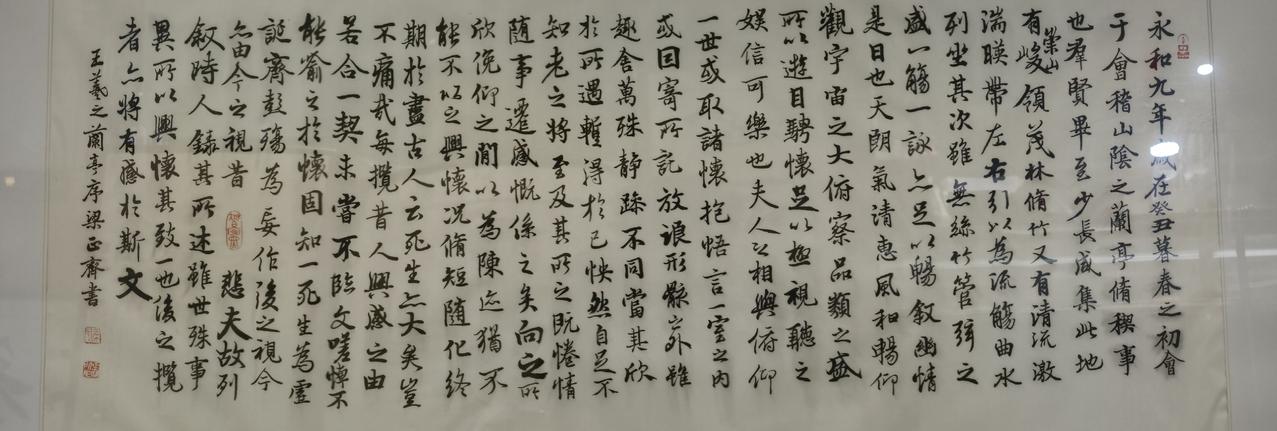 永和九年歲在癸丑暮春之初會
于會稽山陰之蘭亭脩稧事
也羣賢畢至少長咸集此地
有崇山峻領茂林脩竹又有清流激
湍暎帶左右引以為流觴曲水
列坐其次雖無絲竹管弦之
盛一觴一詠亦足以暢敘幽情
是日也天朗氣清惠風和暢仰
觀宇宙之大俯察品類之盛
所以遊目騁懷足以極視聽之
娛信可樂也夫人之相與俯仰
一世或取諸懷抱悟言一室之內
或因寄所託放浪形骸之外雖
趣舍萬殊靜躁不同當其欣
於所遇暫得於己怏然自足不
知老之將至及其所之既惓情
随事遷感慨係之矣向之所
欣俛仰之閒以為陳迹猶不
能不以之興懷況脩短随化終
期於盡古人云死生亦大矣豈
不痛哉每攬昔人興感之由
若合一契未嘗不臨文嗟悼不
能喻之於懷固知一死生為虛
誕齊彭殤為妄作後之視今
亦由今之視昔 悲夫故列
敘時人錄其所述雖世殊事
異所以興懷其致一也後之攬
者亦將有感於斯文
王羲之蘭亭序梁正齋書